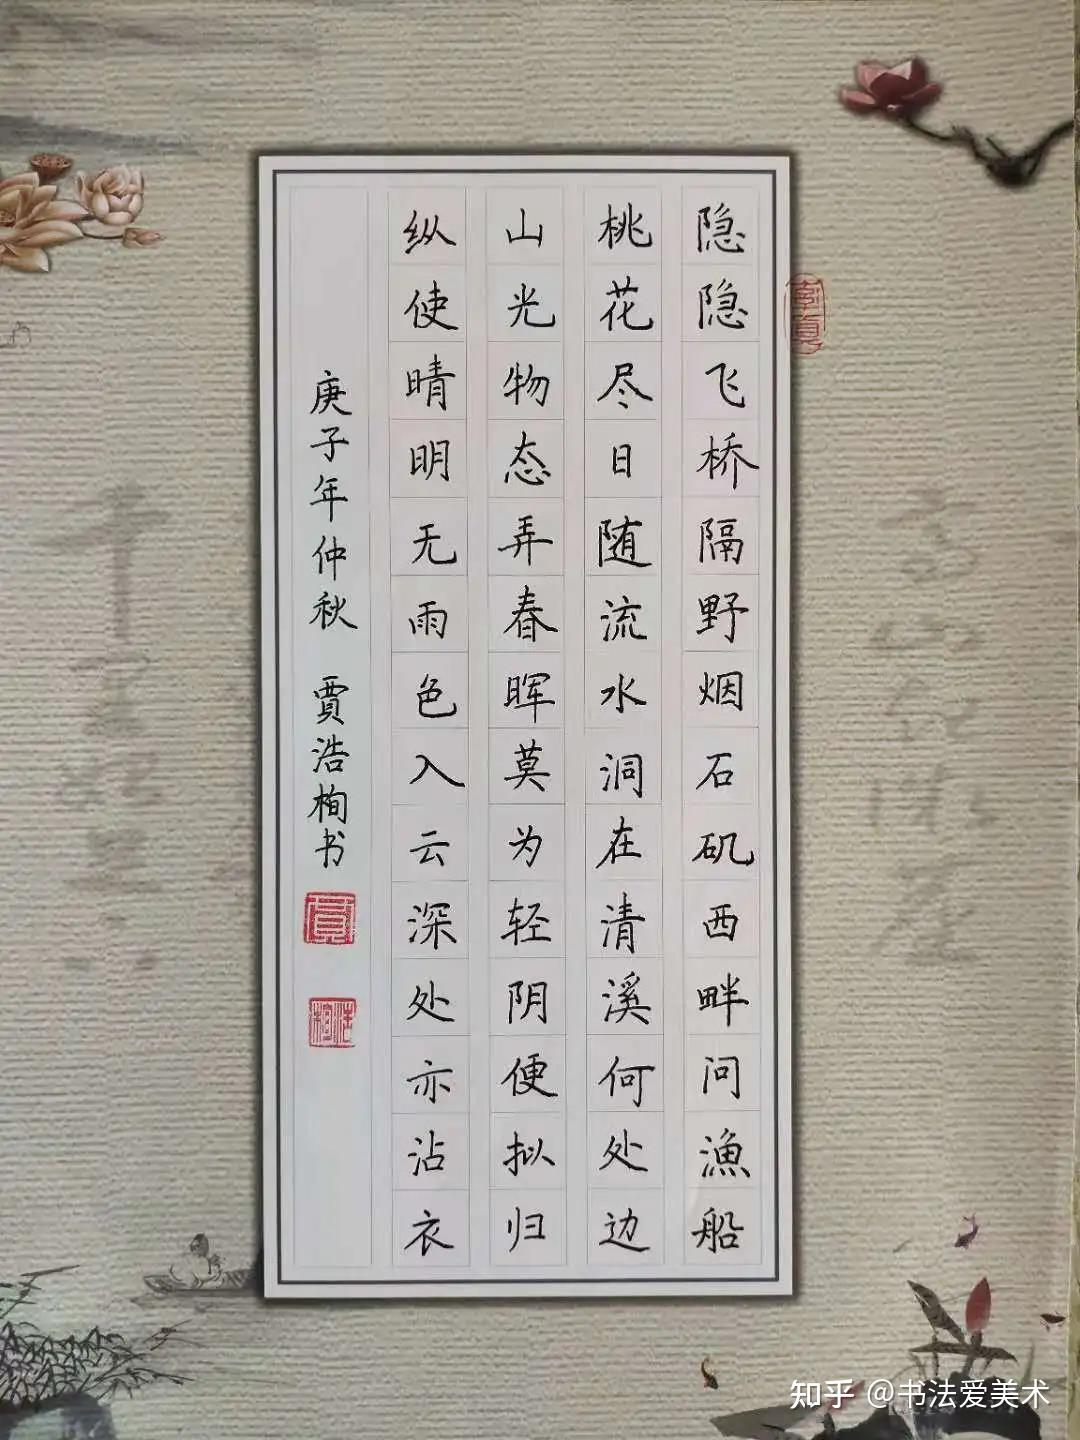 隐隐飞桥隔野烟石矶西畔问渔船
桃花尽日随流水洞在清溪何处边
山光物态弄春晖莫为轻阴便拟归
纵使晴明无雨色入云深处亦沾衣
庚子年仲秋 贾浩栒书
知乎 @书法爱美术